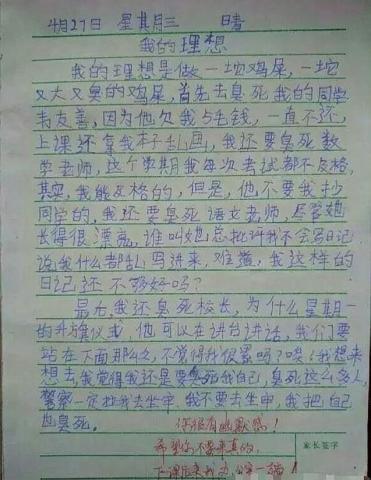 4月27日 星其月三 晴
我的理想
我的理想是做一坨鸡屎，一坨
又大又臭的鸡屎，首先去臭死我的同学
韦友善，因为他欠我5毛钱，一直不还，
上课还拿我本子乱画，我还要臭死数
学老师，这个学期我每次考试都不及格，
其实，我能及格的，但是，他不要我抄
同学的，我还要臭死语文老师，尽管她
长得很漂亮，谁叫她总批评我不会写日记
说我什么都乱写进来，难道，我这样的
日记还不够好吗？
最后，我还臭死校长，为什么星期一
的升旗仪式，他可以在讲台讲话，我们要
站在下面那么久，不觉得我很累吗？唉！我想来
想去，我觉得我还是要臭死我自己，臭死这么多人，
警察一定拉我去坐牢，我不要去坐牢，我把自己
也臭死。
你很有幽默感！
希望你不要来真的，
下课后来办公室一趟！
家长签字